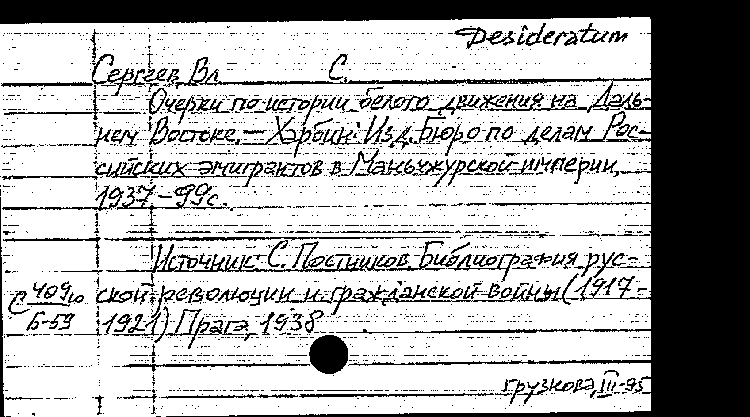 Desideratum
Сергеев, Вл. С.
Очерки по истории белого движения на Даль-
нем Востоке. — Харбин: Изд. Бюро по делам Рос-
сийских эмигрантов в Маньчжурской империи,
1937 – 99с.
Источник: С. Постников. Библиография рус-
С 409ю ской революции и гражданской войны (1917-
Б-59 1921) Прага, 1938
Грузнова, III-95